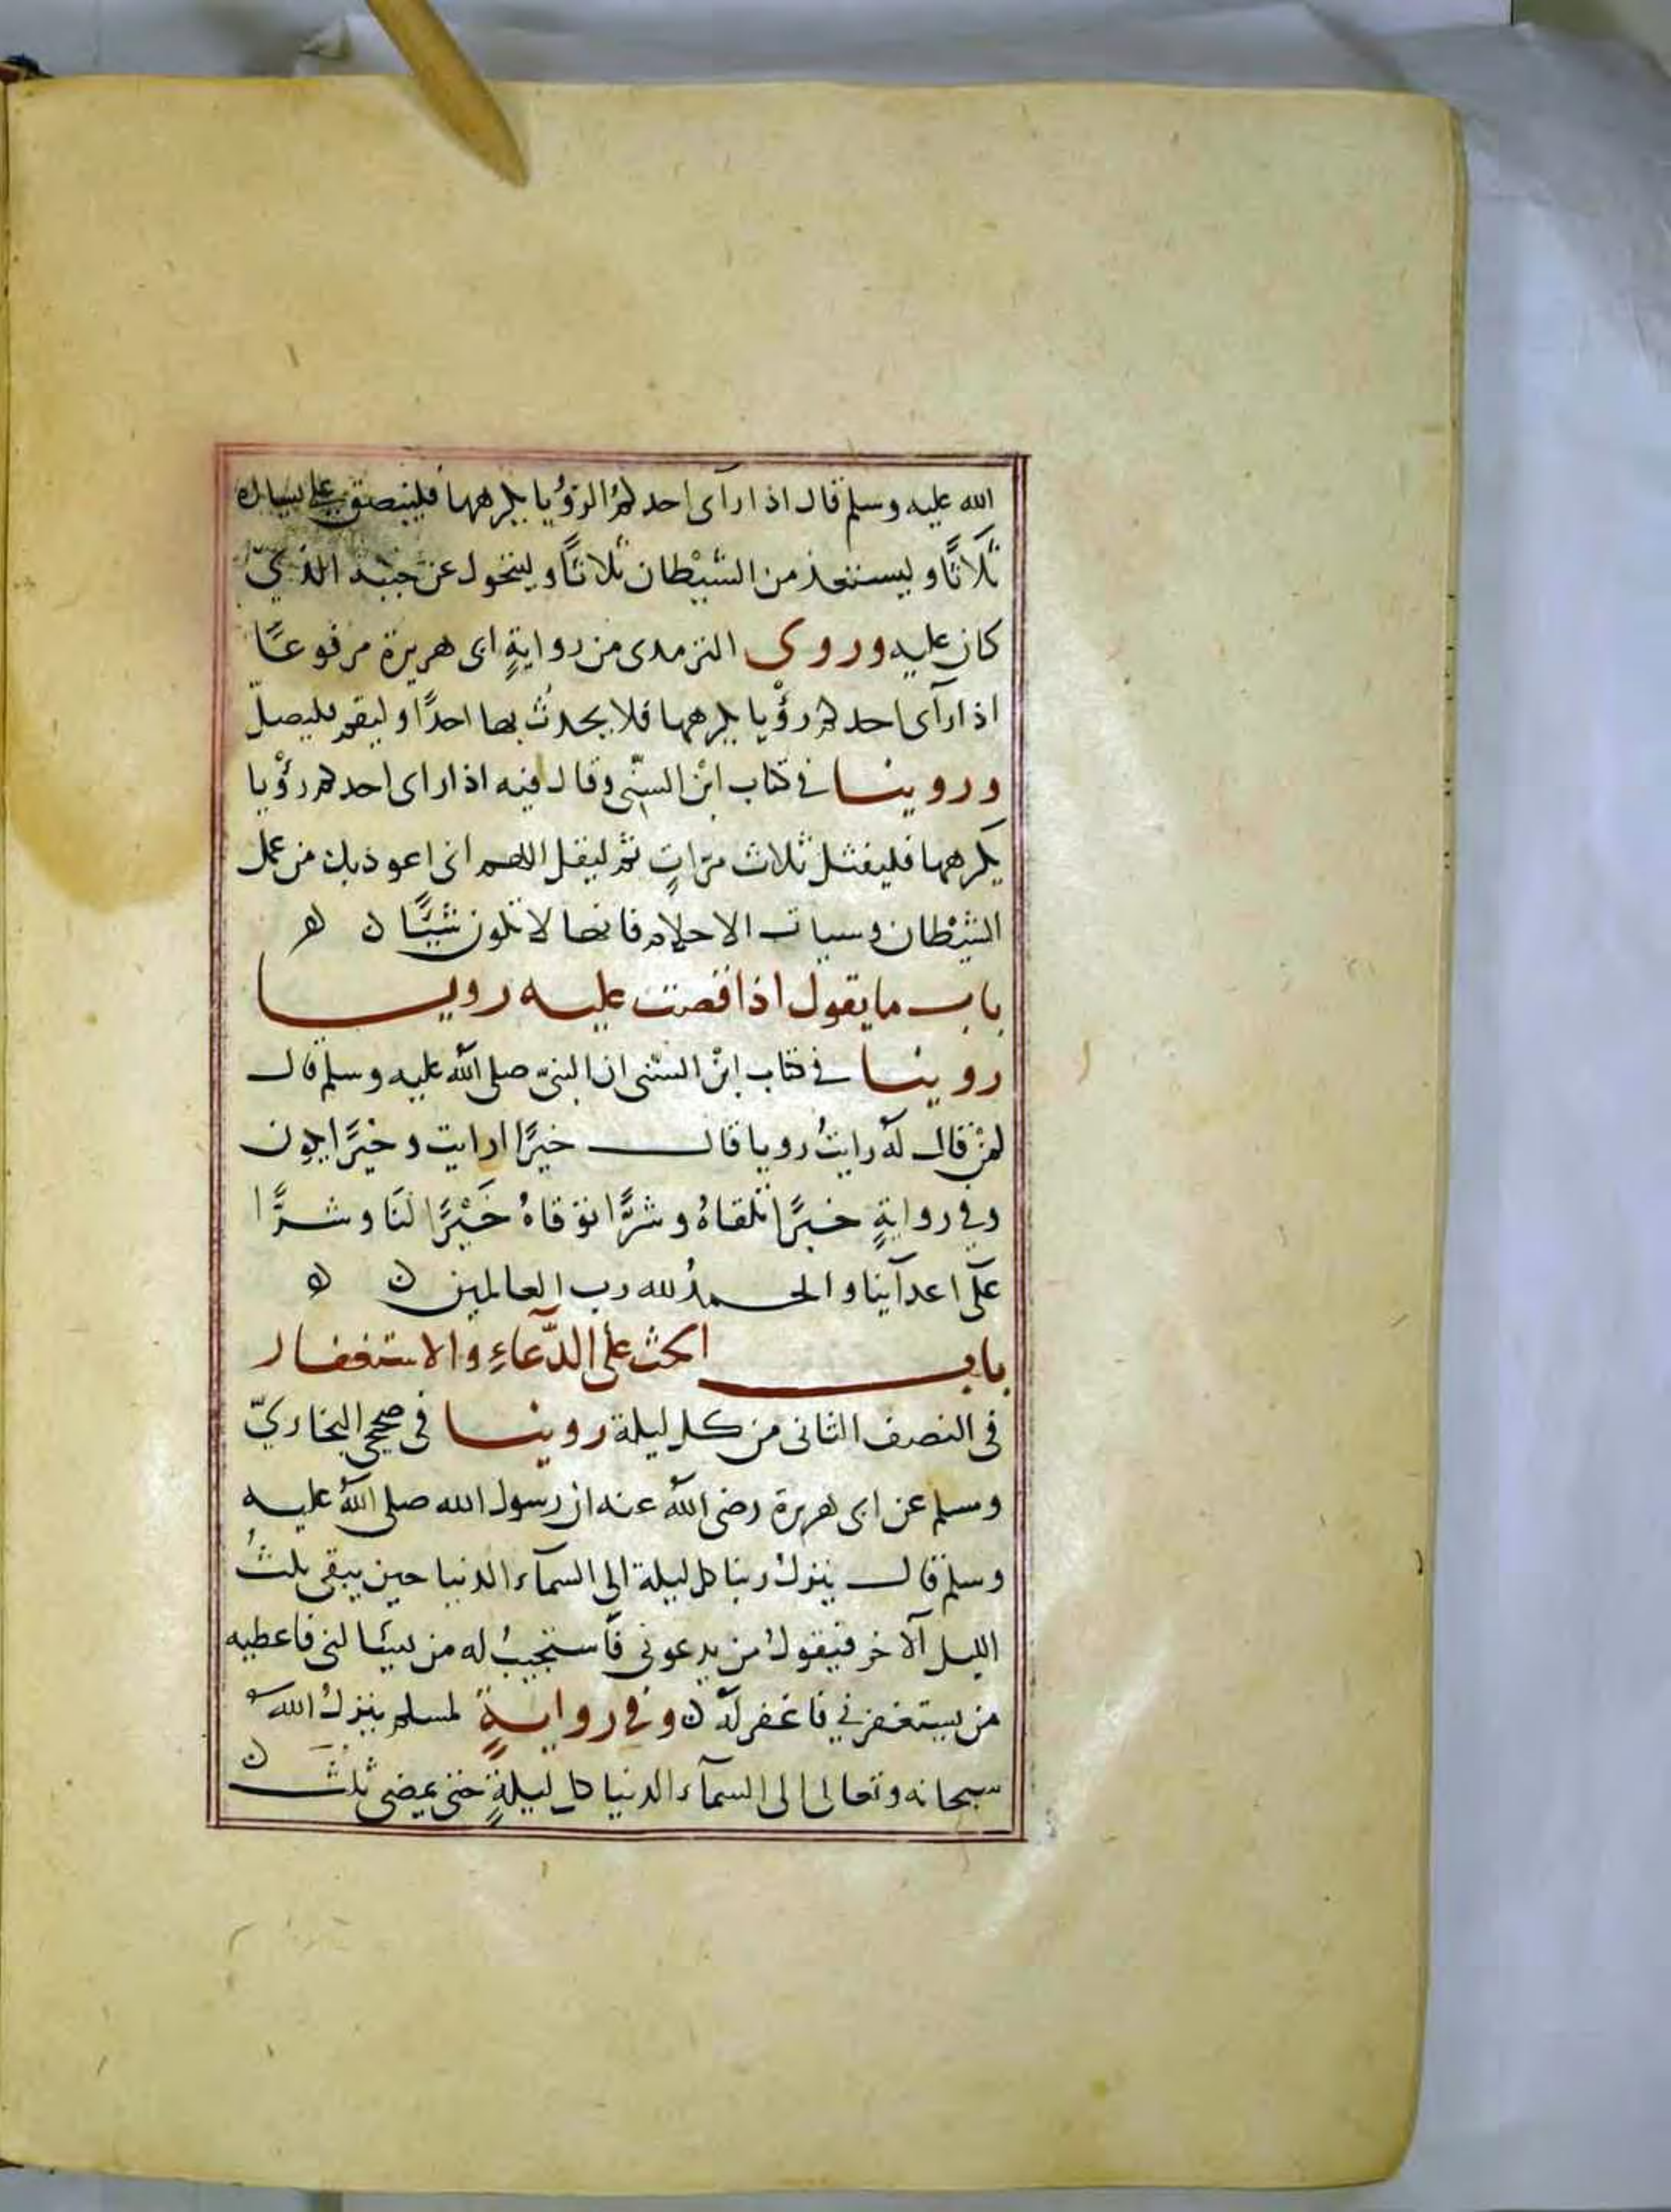 الله عليه وسلم قال اذا رآى احدكم الرؤيا يكرهها فليبصق على يساره
ثلاثًا وليستعذ من الشيْطان ثلاثًا وليتحول عن جنبه الذيّ
كان عليه وروى الترمدى من روايةٍ ابى هريرة مرفوعًا
اذا رآى احدكم رؤْيا يكرهها فلا يحدثُ بها احدًا وليقم فليصلّ
وروينا في كتاب ابْن السنّى وقال فيه اذا راى احدكم رؤْيا
يكرهها فليفثل ثلاث مرّاتٍ ثم ليقل اللهم انى اعوذ بك من عمل
الشيْطان وسيات الاحلام فانها لا تكون شيًّا ن ه
باب ما يقول اذا قصت عليه رويا
روينا في كتاب ابْن السنى ان النبىّ صلى الله عليه وسلم قال
لمنْ قال لهُ رايتُ رويا قال خيرًا رايت وخيرًا يكون
وفى روايةٍ خيرًا تلقاهُ وشرًّا توقاهُ خَيْرًا لنَا وشرًّا
على اعدآينا والحمدُ لله رب العالمين ن ه
باب الحث على الدّعاءِ والاستغفار
فى النصف الثانى من كل ليلة روينا فى صحيح البخاريّ
ومسلم عن ابى هريرة رضى الله عنه ان رسول الله صلى الله عليه
وسلم قال ينزلُ ربنا كل ليلة الى السمآء الدنيا حين يبقى ثلثُ
الليل الآخر فيقولُ من يدعونى فأستجيبُ له من يسئالنى فاعطيه
من يستغفرنى فاغفر لهُ ن وفى روايةٍ لمسلم ينزلُ اللهُ
سبحانه وتعالى الى السمآء الدنيا كل ليلةٍ حتى يمضى ثلث ن